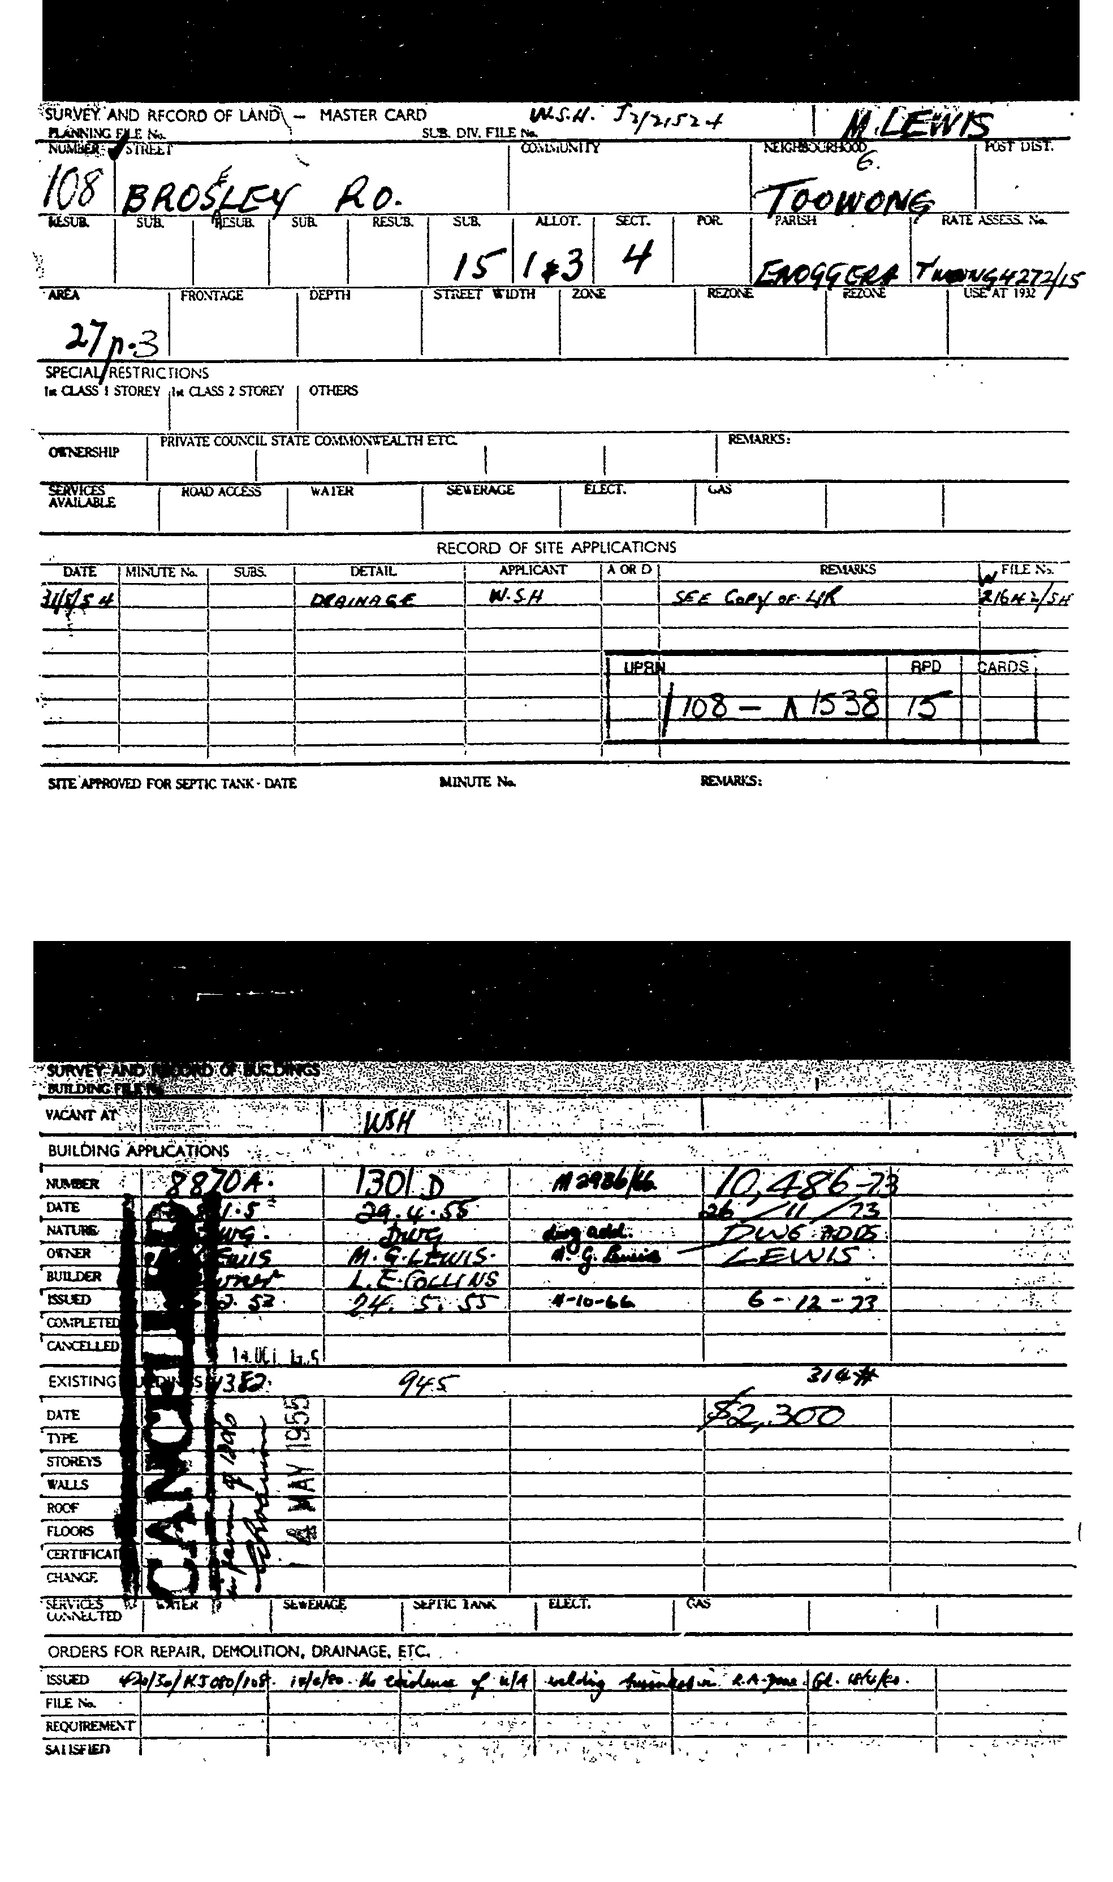 SURVEY AND RECORD OF LAND — MASTER CARD W.S.H. M. LEWIS
PLANNING FILE No. SUB. DIV. FILE No.
NUMBER STREET COMMUNITY NEIGHBOURHOOD POST DIST.
108 BROSELEY RD. 6. TOOWONG
RESUB. SUB. RESUB. SUB. RESUB. SUB. ALLOT. SECT. POR. PARISH RATE ASSESS. No.
15 1 & 3 4 ENOGGERA TWONG 4272/15
AREA FRONTAGE DEPTH STREET WIDTH ZONE REZONE REZONE USE AT 1932
27 p. 3
SPECIAL RESTRICTIONS
1st CLASS 1 STOREY 1st CLASS 2 STOREY OTHERS
OWNERSHIP PRIVATE COUNCIL STATE COMMONWEALTH ETC. REMARKS:
SERVICES AVAILABLE ROAD ACCESS WATER SEWERAGE ELECT. GAS
RECORD OF SITE APPLICATIONS
DATE MINUTE No. SUBS. DETAIL APPLICANT A OR D REMARKS FILE No.
DRAINAGE W.S.H SEE COPY OF
UPRN RPD CARDS
108 — 1538 15
SITE APPROVED FOR SEPTIC TANK - DATE MINUTE No. REMARKS:
SURVEY AND RECORD OF BUILDINGS
BUILDING FILE No.
VACANT AT WSH
BUILDING APPLICATIONS
NUMBER 8870A. 1301 D M2986/66 10,486-73
DATE 29.4.55 26/11/73
NATURE DWG. DWG dwg add. DWG ADDS
OWNER M.G. LEWIS. M. G. Lewis LEWIS
BUILDER L.E. COLLINS
ISSUED 2.52 24.5.55 4-10-66 6-12-73
COMPLETED
CANCELLED
EXISTING BUILDINGS 1382. 945 314#
DATE $2,300
TYPE
STOREYS
WALLS
ROOF
FLOORS
CERTIFICATE
CHANGE
CANCELLED
in favour of 1301D
MAY 1955
SERVICES CONNECTED WATER SEWERAGE SEPTIC TANK ELECT. GAS
ORDERS FOR REPAIR, DEMOLITION, DRAINAGE, ETC.
ISSUED evidence of u/A welding business in R.A. Zone.
FILE No.
REQUIREMENT
SATISFIED